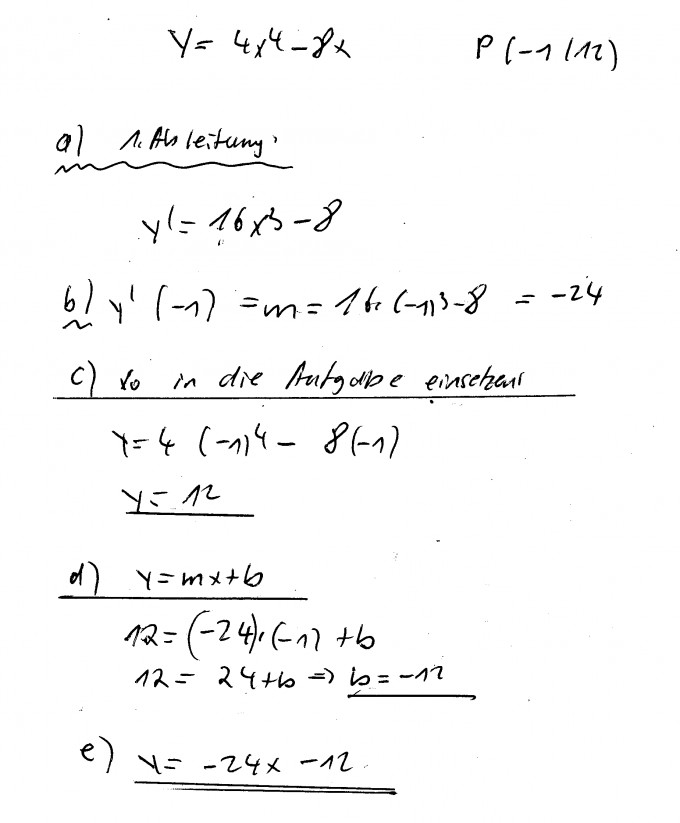 y = 4x⁴ - 8x P(-1/12)
a) 1. Ableitung:
y' = 16x³ - 8
b) y'(-1) = m = 16·(-1)³ - 8 = -24
c) x₀ in die Aufgabe einsetzen:
y = 4 (-1)⁴ - 8(-1)
y = 12
d) y = mx + b
12 = (-24)·(-1) + b
12 = 24 + b ⇒ b = -12
e) y = -24x - 12